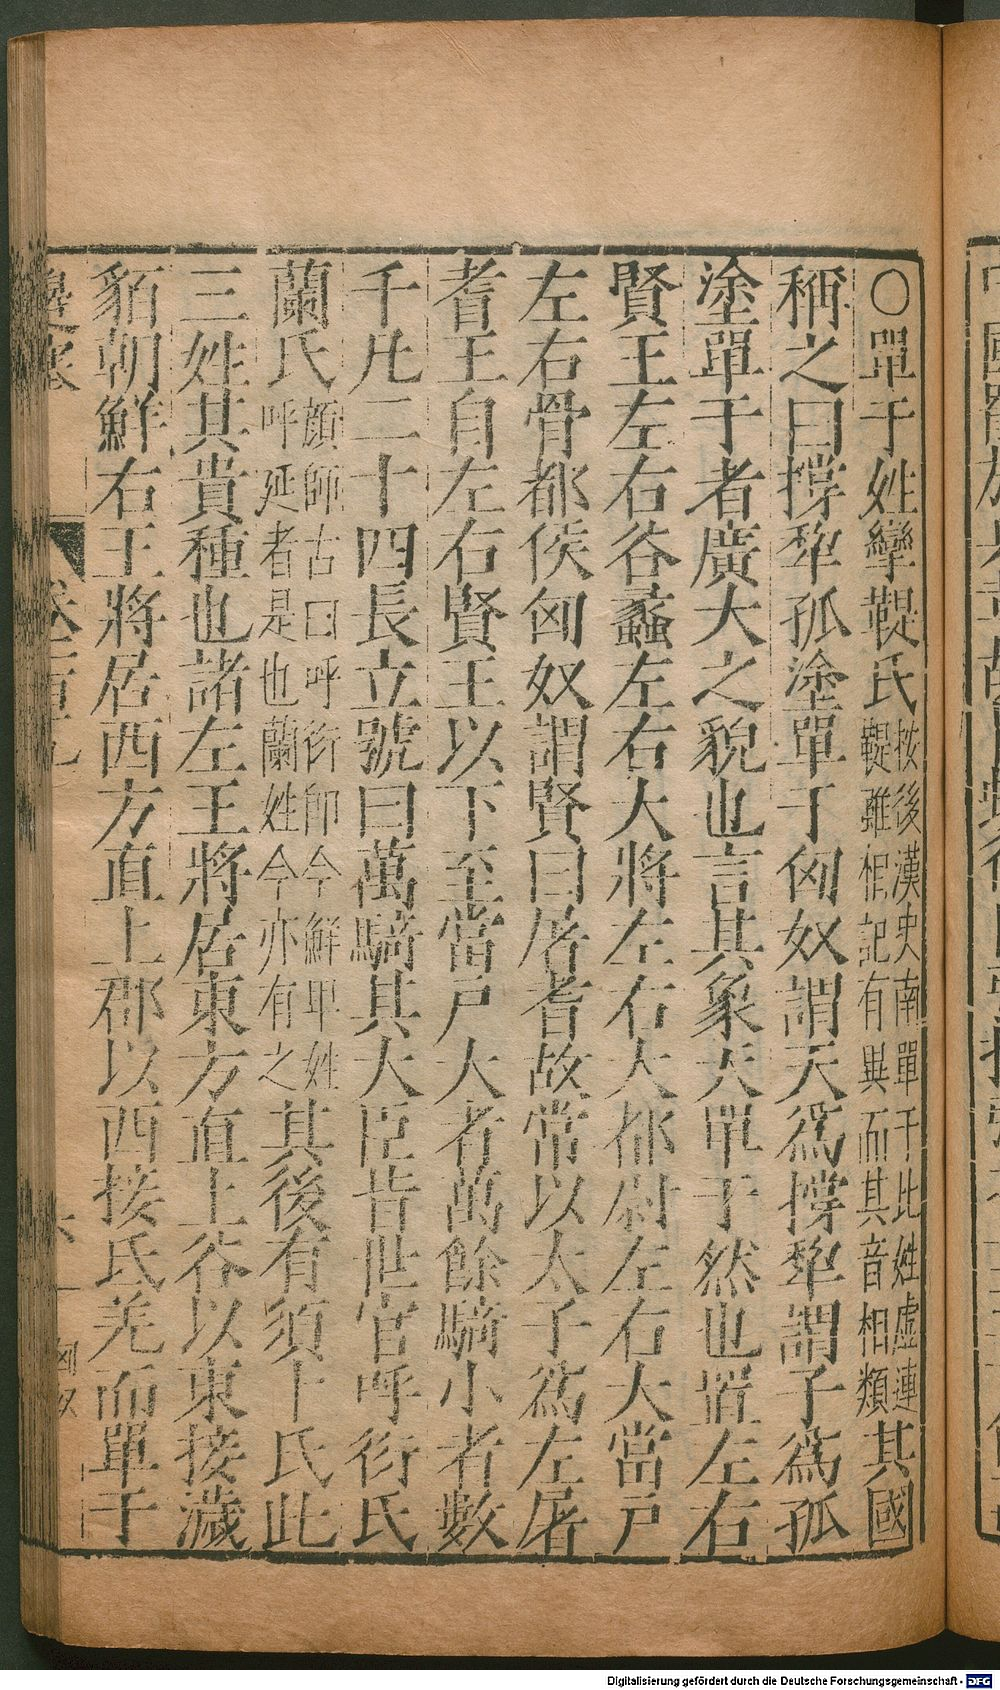 ○單于姓攣鞮氏按後漢史南單于比姓虛連鞮雖相記有與而其音相類其國
稱之曰撐犂孤塗單于匈奴謂天爲撐犂謂子爲孤
塗單于者廣大之貌也言其象天單于然也置左右
賢王左右谷蠡左右大將左右大都尉左右大當戶
左右骨都侯匈奴謂賢曰屠耆故常以太子爲左屠
耆王自左右賢王以下至當戶大者萬餘騎小者數
千凡二十四長立號曰萬騎其大臣皆世官呼衍氏
蘭氏顔師古曰呼衍卽今鮮卑姓呼延者是也蘭姓今亦有之其後有須卜氏此
三姓其貴種也諸左王將居東方直上谷以東接濊
貊朝鮮右王將居西方直上郡以西接氐羌而單于
邊塞
匈奴
Digitalisierung gefördert durch die Deutsche Forschungsgemeinschaft - DFG